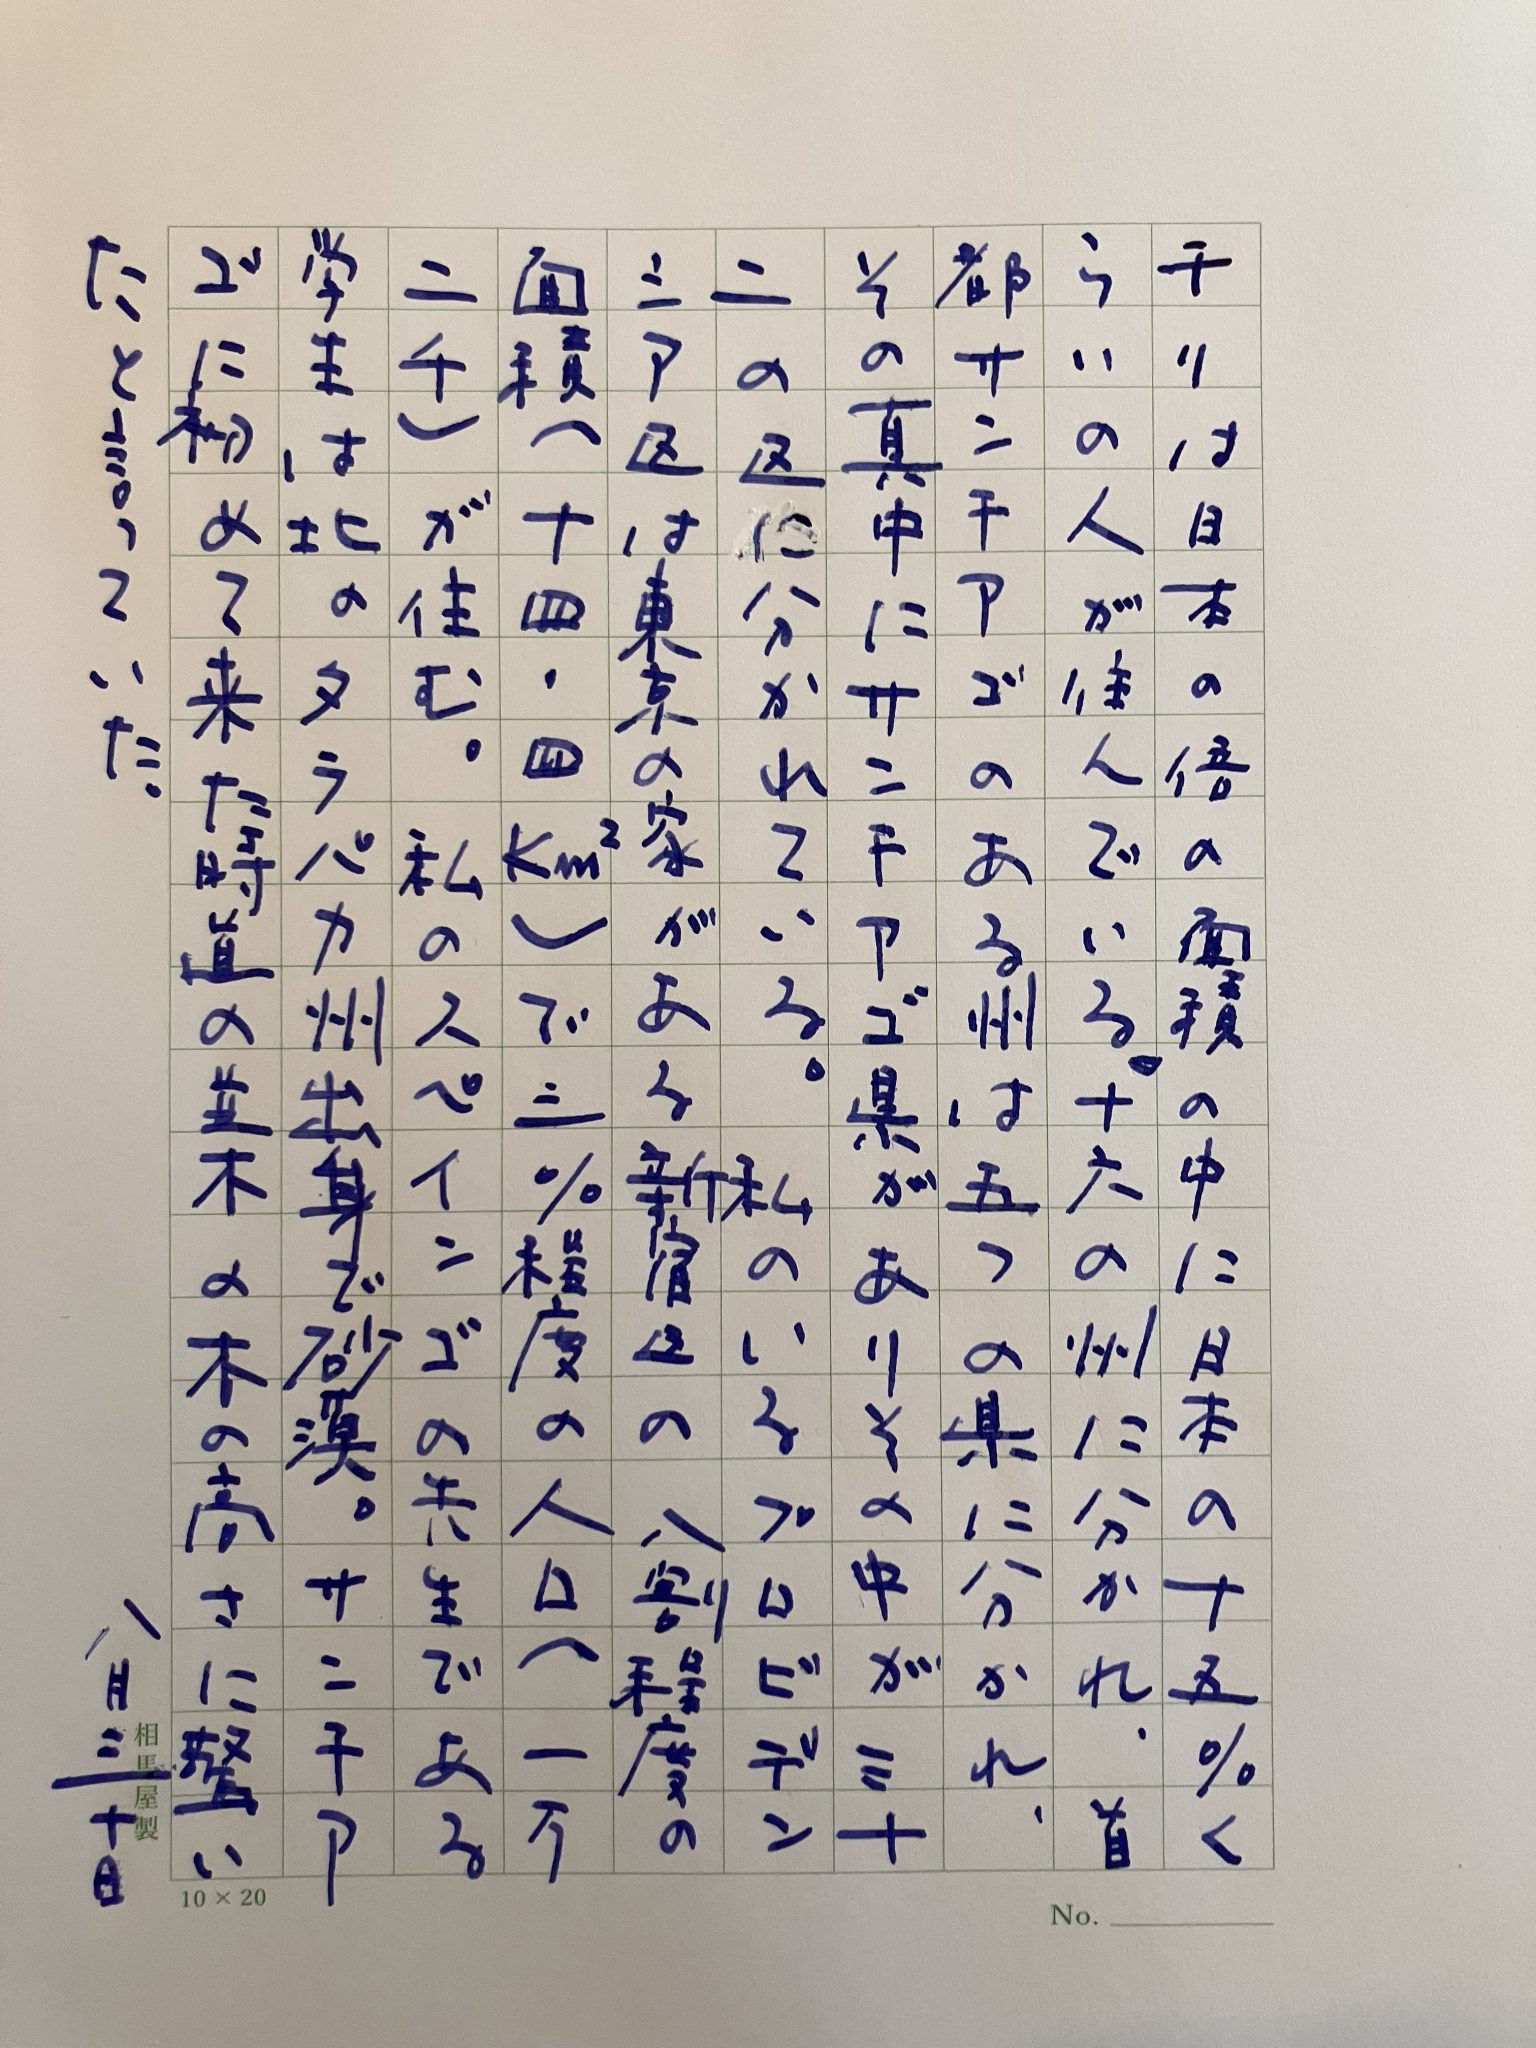 チリは日本の倍の面積の中に日本の十五%く
らいの人が住んでいる。十六の州に分かれ、首
都サンチアゴのある州は五つの県に分かれ、
その真中にサンチアゴ県がありその中が三十
二の区に分かれている。私のいるプロビデン
シア区は東京の家がある新宿区の八割程度の
面積(十四・四Km²)で三%程度の人口(一万
二千)が住む。私のスペインゴの先生である
学生は北のタラパカ州出身で砂漠。サンチア
ゴに初めて来た時道の並木の木の高さに驚い
たと言っていた。
八月三十日
相馬屋製
10×20
No.